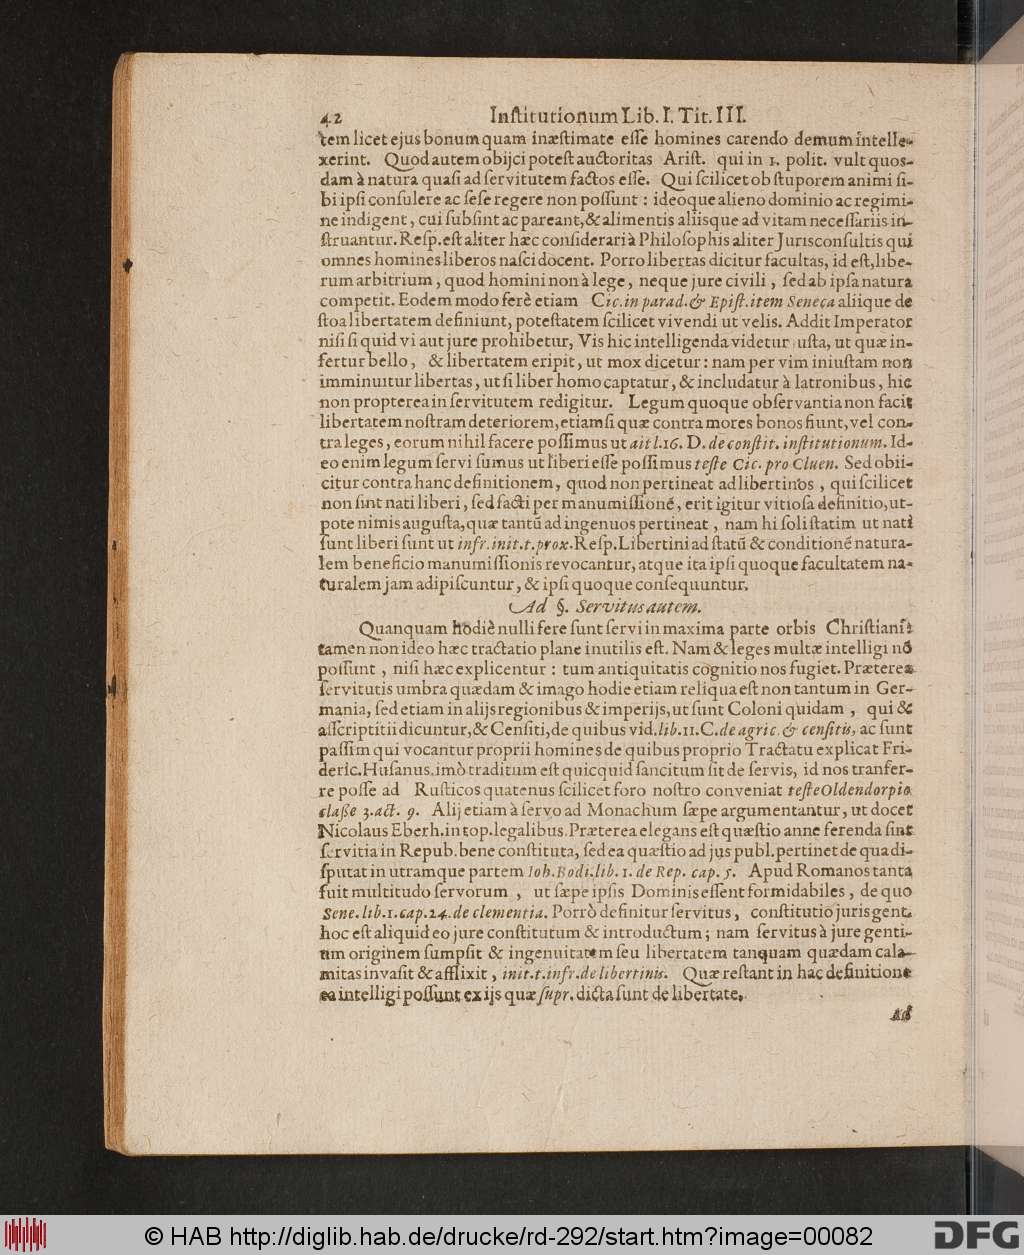 42 Inſtitutionum Lib. I. Tit. III.
tem licet ejus bonum quam inæſtimate eſſe homines carendo demum intelle-
xerint. Quod autem obijci poteſt auctoritas Ariſt. qui in 1. polit. vult quos-
dam à natura quaſi ad ſervitutem factos eſſe. Qui ſcilicet ob ſtuporem animi ſi-
bi ipſi conſulere ac ſeſe regere non poſſunt : ideoque alieno dominio ac regimi-
ne indigent, cui ſubſint ac pareant, & alimentis aliisque ad vitam neceſſariis in-
ſtruantur. Reſp. eſt aliter hæc conſiderari à Philoſophis aliter Jurisconſultis qui
omnes homines liberos naſci docent. Porro libertas dicitur facultas, id eſt, libe-
rum arbitrium, quod homini non à lege, neque jure civili, ſed ab ipſa natura
competit. Eodem modo ferè etiam Cic. in parad. & Epiſt. item Seneca aliique de
ſtoa libertatem definiunt, poteſtatem ſcilicet vivendi ut velis. Addit Imperator
niſi ſi quid vi aut jure prohibetur, Vis hic intelligenda videtur uſta, ut quæ in-
fertur bello, & libertatem eripit, ut mox dicetur : nam per vim iniuſtam non
imminuitur libertas, ut ſi liber homo captatur, & includatur à latronibus, hic
non propterea in ſervitutem redigitur. Legum quoque obſervantia non facit
libertatem noſtram deteriorem, etiamſi quæ contra mores bonos fiunt, vel con-
tra leges, eorum nihil facere poſſimus ut ait l. 16. D. de conſtit. inſtitutionum. Id-
eo enim legum ſervi ſumus ut liberi eſſe poſſimus teſte Cic. pro Cluen. Sed obii-
citur contra hanc definitionem, quod non pertineat ad libertinos, qui ſcilicet
non ſint nati liberi, ſed facti per manumiſſioné, erit igitur vitioſa definitio, ut-
pote nimis auguſta, quæ tantũ ad ingenuos pertineat, nam hi ſoli ſtatim ut nati
ſunt liberi ſunt ut infr. init. t. prox. Reſp. Libertini ad ſtatũ & conditioné natura-
lem beneficio manumiſſionis revocantur, atque ita ipſi quoque facultatem na-
turalem jam adipiſcuntur, & ipſi quoque conſequuntur.
Ad §. Servitus autem.
Quanquam hodiè nulli fere ſunt ſervi in maxima parte orbis Chriſtiani:
tamen non ideo hæc tractatio plane inutilis eſt. Nam & leges multæ intelligi nō
poſſunt, niſi hæc explicentur : tum antiquitatis cognitio nos fugiet. Præterea
ſervitutis umbra quædam & imago hodie etiam reliqua eſt non tantum in Ger-
mania, ſed etiam in alijs regionibus & imperijs, ut ſunt Coloni quidam, qui &
aſſcriptitii dicuntur, & Cenſiti, de quibus vid. lib. 11. C. de agric. & cenſitis, ac ſunt
paſſim qui vocantur proprii homines de quibus proprio Tractatu explicat Fri-
deric. Huſanus. imò traditum eſt quicquid ſancitum ſit de ſervis, id nos tranfer-
re poſſe ad Ruſticos quatenus ſcilicet foro noſtro conveniat teſte Oldendorpio
claſſe 3. act. 9. Alij etiam à ſervo ad Monachum ſæpe argumentantur, ut docet
Nicolaus Eberh. in top. legalibus. Præterea elegans eſt quæſtio anne ferenda ſint
ſervitia in Repub. bene conſtituta, ſed ea quæſtio ad jus publ. pertinet de qua di-
ſputat in utramque partem Ioh. Bodi. lib. 1. de Rep. cap. 5. Apud Romanos tanta
fuit multitudo ſervorum, ut ſæpe ipſis Dominis eſſent formidabiles, de quo
Sene. lib. 1. cap. 24. de clementia. Porrò definitur ſervitus, conſtitutio juris gent.
hoc eſt aliquid eo jure conſtitutum & introductum ; nam ſervitus à jure genti-
um originem ſumpſit & ingenuitatem ſeu libertatem tanquam quædam cala-
mitas invaſit & afflixit, init. t. infr. de libertinis. Quæ reſtant in hac definitione
ea intelligi poſſunt ex ijs quæ ſupr. dicta ſunt de libertate.
Ad
© HAB http://diglib.hab.de/drucke/rd-292/start.htm?image=00082
DFG